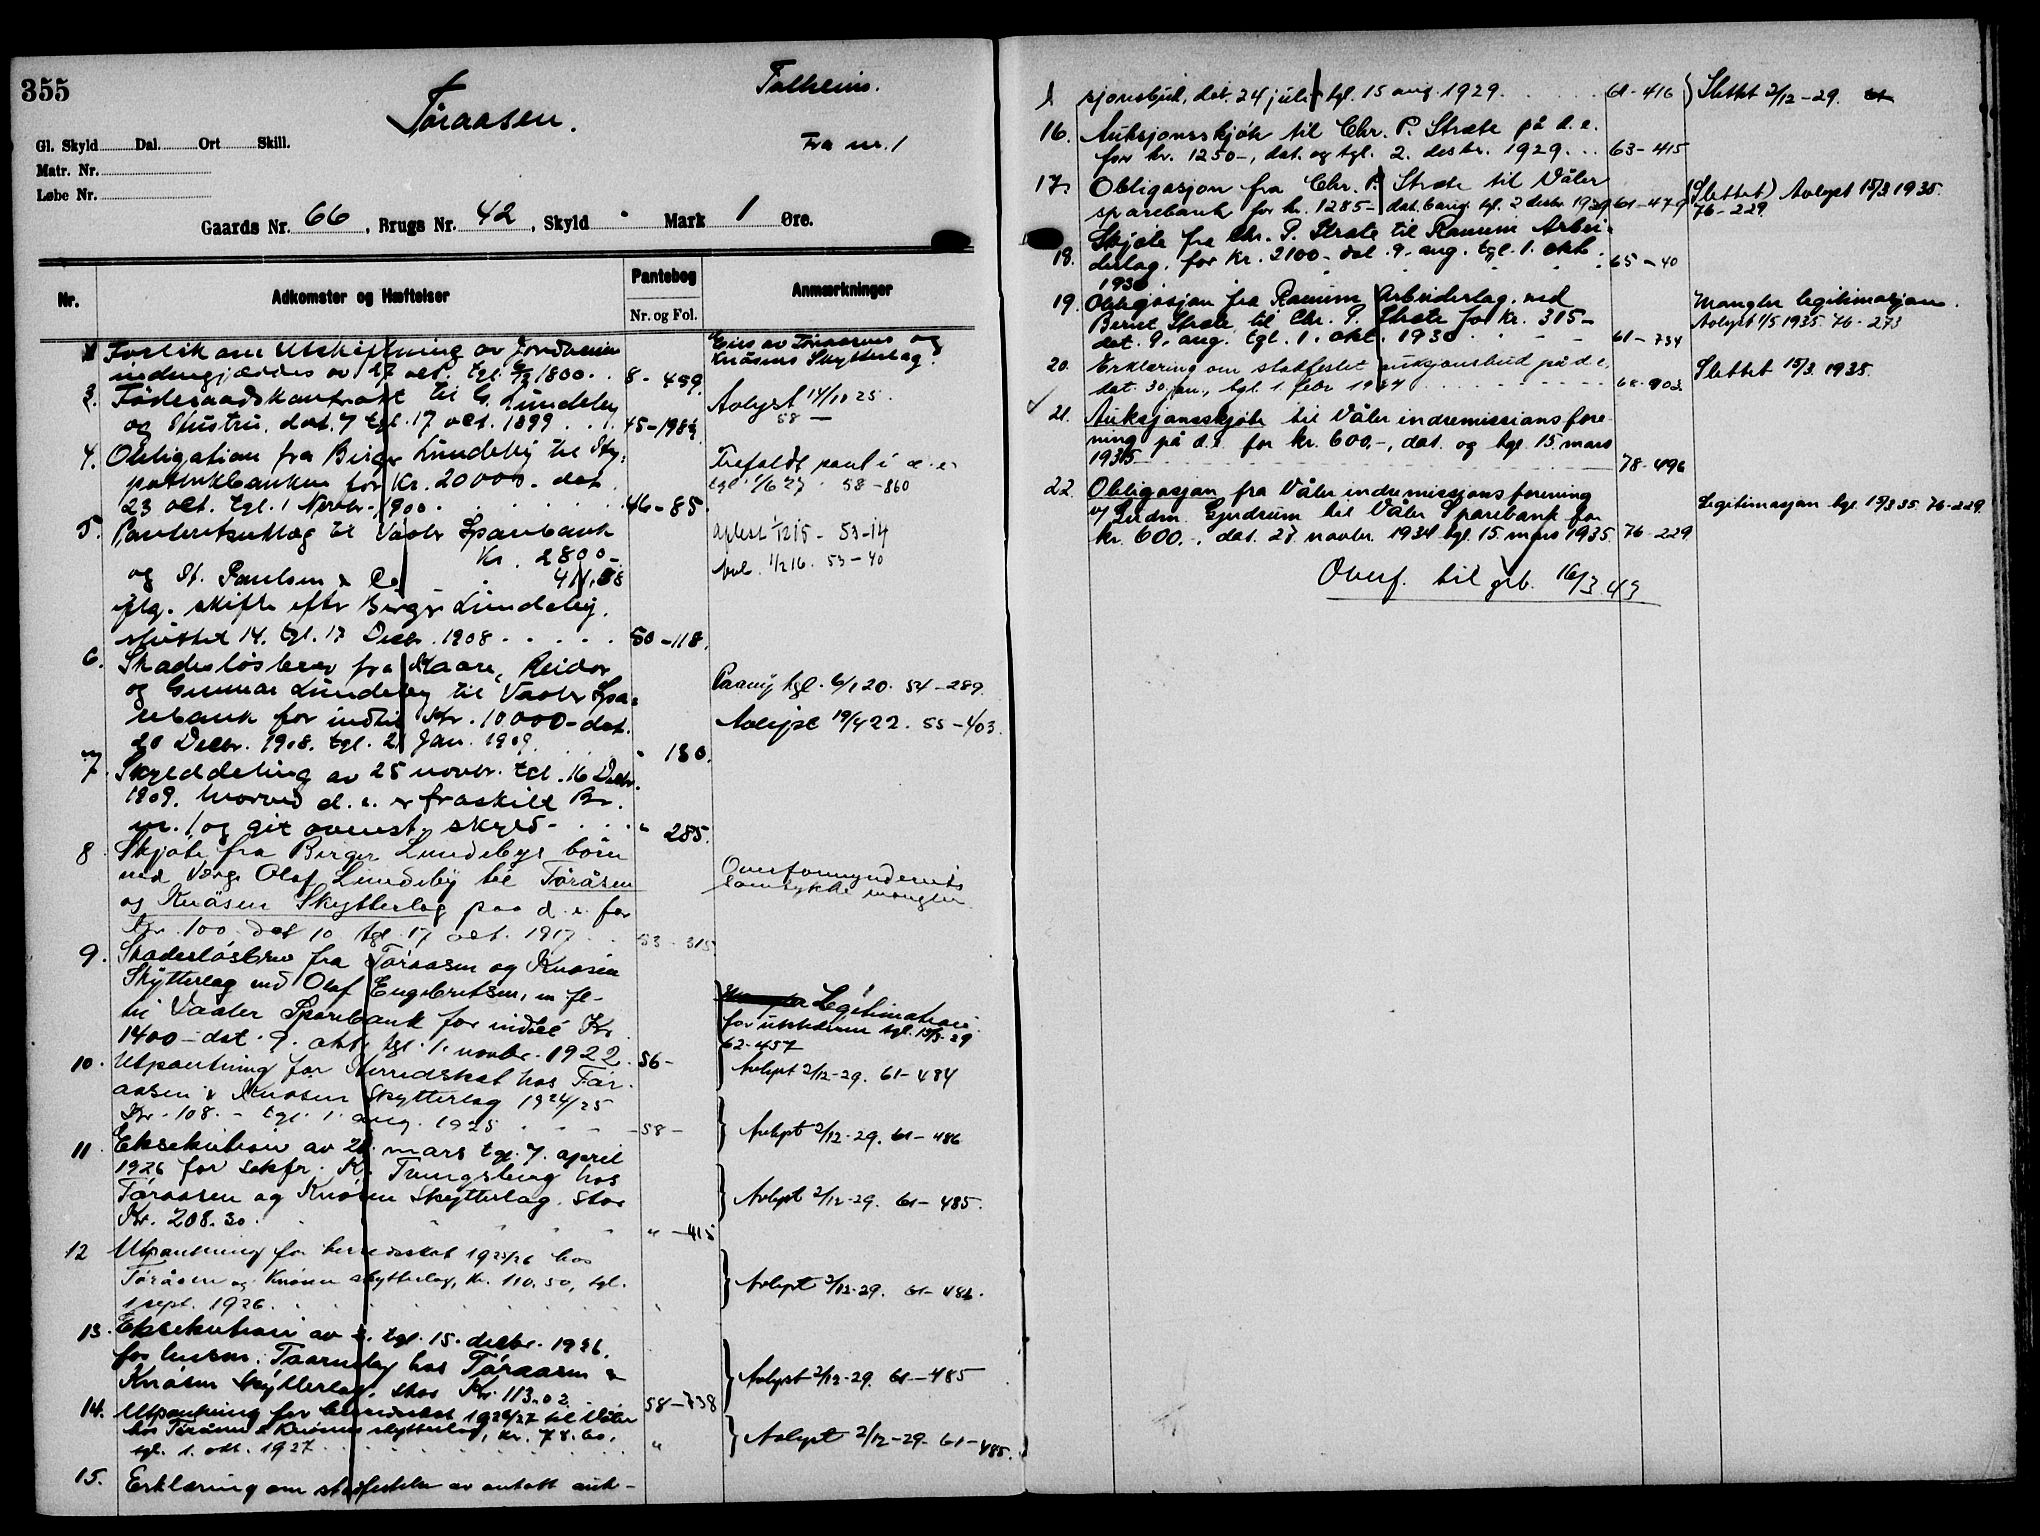 355
Tøraasen.
Folkheim.
Fra nr. 1
Gl. Skyld Dal. Ort Skill.
Matr. Nr.
Løbe Nr.
Gaards Nr. 66, Brugs Nr. 42, Skyld - Mark 1 Øre.
Nr.
Adkomster og Hæftelser
Pantebog
Nr. og Fol.
Anmærkninger
Forlik om Utskiftning av Jordveien
indengjærdes av 17 oct. tgl. 1800. 8-499.
Eies av Tøraasens og
Knåsens Skytterlag.
3. Føderaadskontrakt til G. Lundeby
og Hustru, dat. 7 tgl. 17 oct. 1899 . . 45-198
Avlyst 14/10 25.
58 —
4. Obligation fra Birger Lundeby til Hy-
pothekbanken for Kr. 20000.- dat.
23 oct. tgl. 1 Novbr. 1900. 46-85.
Trefoldt pant i d. e.
tgl. 1/6 27. 58-860
5. Panteretsutlæg til Vaaler Sparebank
Kr. 2800-
og St. Paulsen & Co 411,88
iflg. skifte efter Birger Lundeby,
sluttet 14. tgl. 17 Decbr. 1908 . . . . . 50-118.
53-14
avl. 1/2 16. 53-40
6. Skadesløsbrev fra Kaare, Reidar
og Gunnar Lundeby til Vaaler Spa-
rebank for indtil Kr. 10000- dat.
20 Decbr. 1908. tgl. 2 Jan. 1909. " 130.
Paany tgl. 6/1 20. 54-289.
Avlyst 19/4 22. 55-403.
7. Skylddeling av 25 novbr. tgl. 16 Decbr.
1909. hvorved d. e. er fraskilt Br.
nr. 1 og git ovenst. skyld - . . . " 285.
8. Skjøte fra Birger Lundebys børn
ved Værge Olaf Lundeby til Tøråsen
og Knåsen Skytterlag paa d. e. for
Kr. 100 dat 10 tgl. 17 oct. 1917 . . 53-315
Overformynderiets
samtykke mangler.
9. Skadesløsbrev fra Tøraasen og Knåsen
Skytterlag ved Olaf Engebretsen, m. fl.
til Vaaler Sparebank for indtil Kr.
1400 - dat. 9. okt. tgl. 1. novbr. 1922. 56-
Legitimation
for utstederne tgl. 15/5 29
62-457
Avlyst 2/12-29. 61-484
10. Utpantning for Herredskat hos Tør-
aasen & Knåsen Skytterlag 1924/25
Kr. 108.- tgl. 1. aug. 1925 58-
Avlyst 2/12-29. 61-486
11 Eksekution av 28. mars tgl. 7. april
1926 for sakfr. K. Tvengsberg hos
Tøraasen og Knåsen Skytterlag. stor
Kr. 208.30. " -415
Avlyst 2/12-29. 61-485.
12 Utpantning for herredsskat 1925/26 hos
Tøråsen og Knåsen skytterlag, kr. 110.50, tgl.
1 sept. 1926. "
Avlyst 2/12-29. 61-486.
13. Eksekution av tgl. 15. decbr. 1926.
for lensm. Taarneby hos Tøraasen &
Knåsen Skytterlag. stor Kr. 113.02. 58-738
Avlyst 2/12-29. 61-485
14. Utpantning for herredsskat 1926/27 til Våler
hos Tøråsen & Knåsens skytterlag, kr. 78.60,
tgl. 1. okt. 1927. "
Avlyst 2/12-29. 61-485.
15. Erklæring om stadfestelse av antatt auk-
sjonsbud, dat. 24 juli tgl. 15 aug. 1929. 61-416
Slettet 2/12-29.
16. Auksjonsskjøte til Chr. P. Stræte på d. e.
for kr. 1250-, dat. og tgl. 2. desbr. 1929. . . 63-415
17. Obligasjon fra Chr. P. Stræte til Våler
sparebank for kr. 1285- dat. 6 aug. tgl. 2 desbr. 1929 61-479
(Slettet) Avlyst 15/3 1935.
76-229.
18. Skjøte fra Chr. P. Stræte til Ramum Arbei-
derlag. for kr. 2100- dat. 9. aug. tgl. 1. okt.
1930. 65-40
19. Obligasjon fra Ramum Arbeiderlag. ved
Bernt Stræte til Chr. P. Stræte for kr. 315-
dat. 9. aug. tgl. 1. okt. 1930. 61-734
Mangler legitimasjon.
Avlyst 1/5 1935 76-273
20. Erklæring om stadfestet auksjonsbud på d. e.
dat. 30. jan., tgl. 1 febr 1934 68-903
Slettet 15/3 1935.
21. Auksjonsskjøte til Våler indremissionsfore-
ning på d. e. for kr. 600.-, dat. og tgl. 15 mars
1935 78-496
22. Obligasjon fra Våler indremissjonsforening
v/ Gudm. Gjerdrum til Våler Sparebank for
kr. 600.-, dat. 27 novbr. 1934 tgl. 15. mars 1935. 76-229
Legitimasjon tgl. 15/3 35. 76-229.
Overf. til grb. 16/3 49